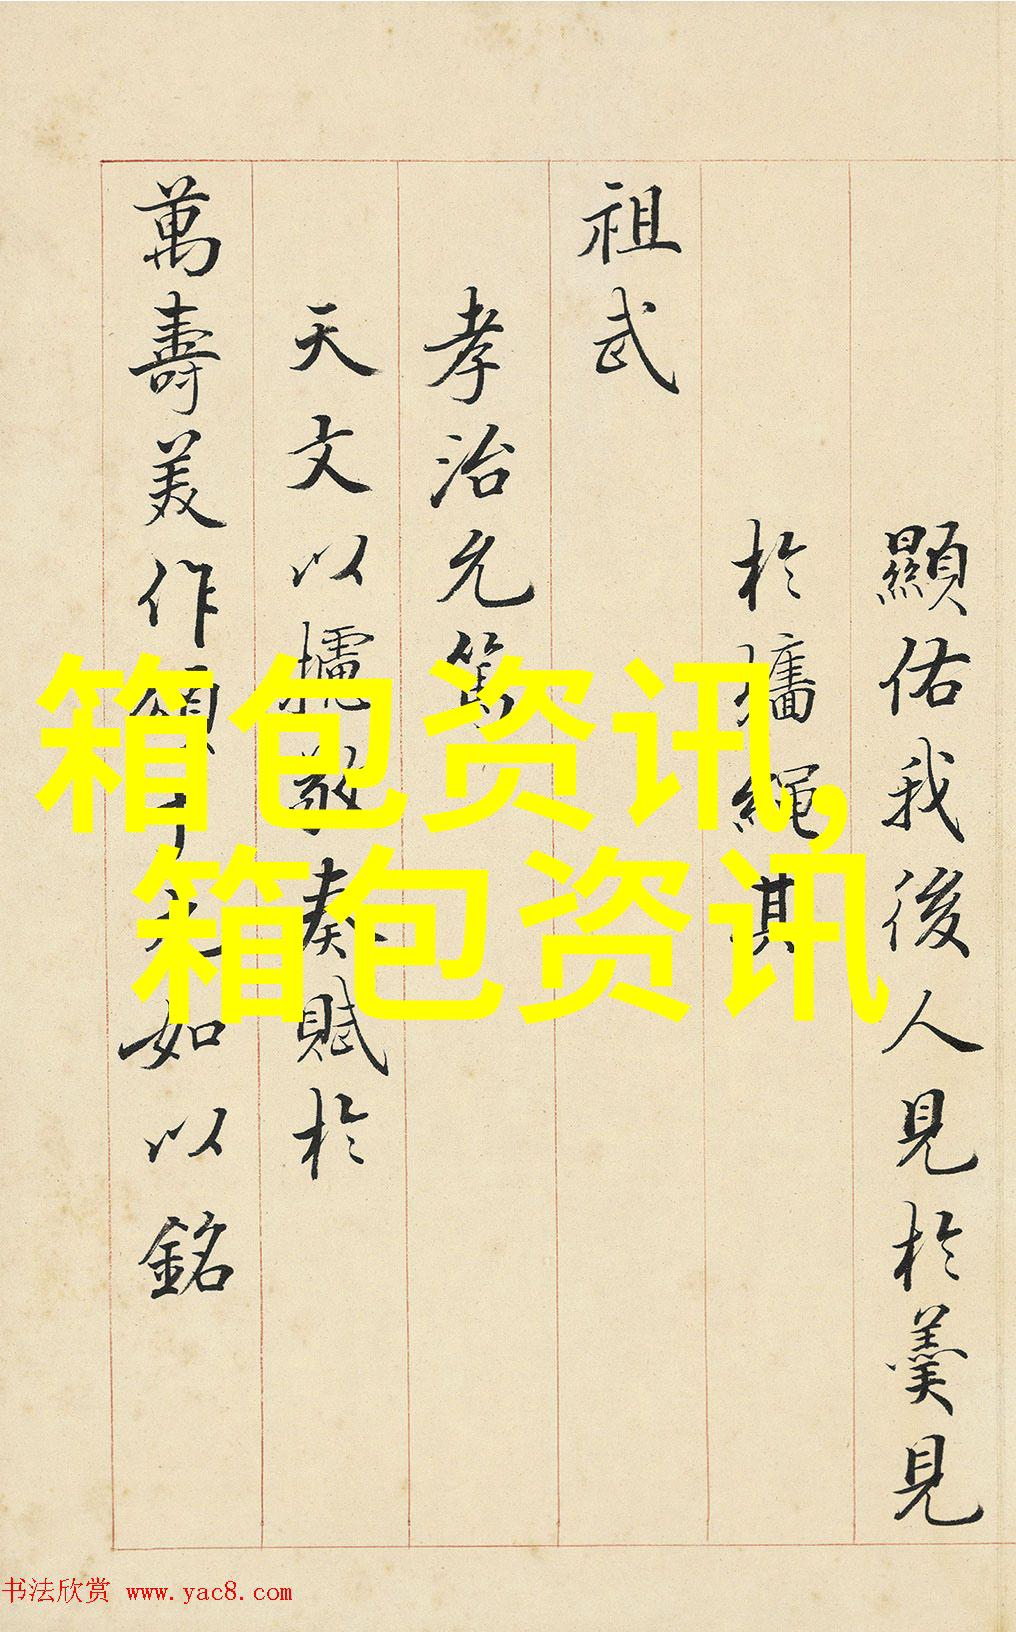 顯佑我後人見於羹見
於牆繩其
祖武
孝治允篤
天文以攄敬奏賦於
萬壽美作頌千允如以銘
箱包资讯,
箱包资讯
书法欣赏 www.yac8.com